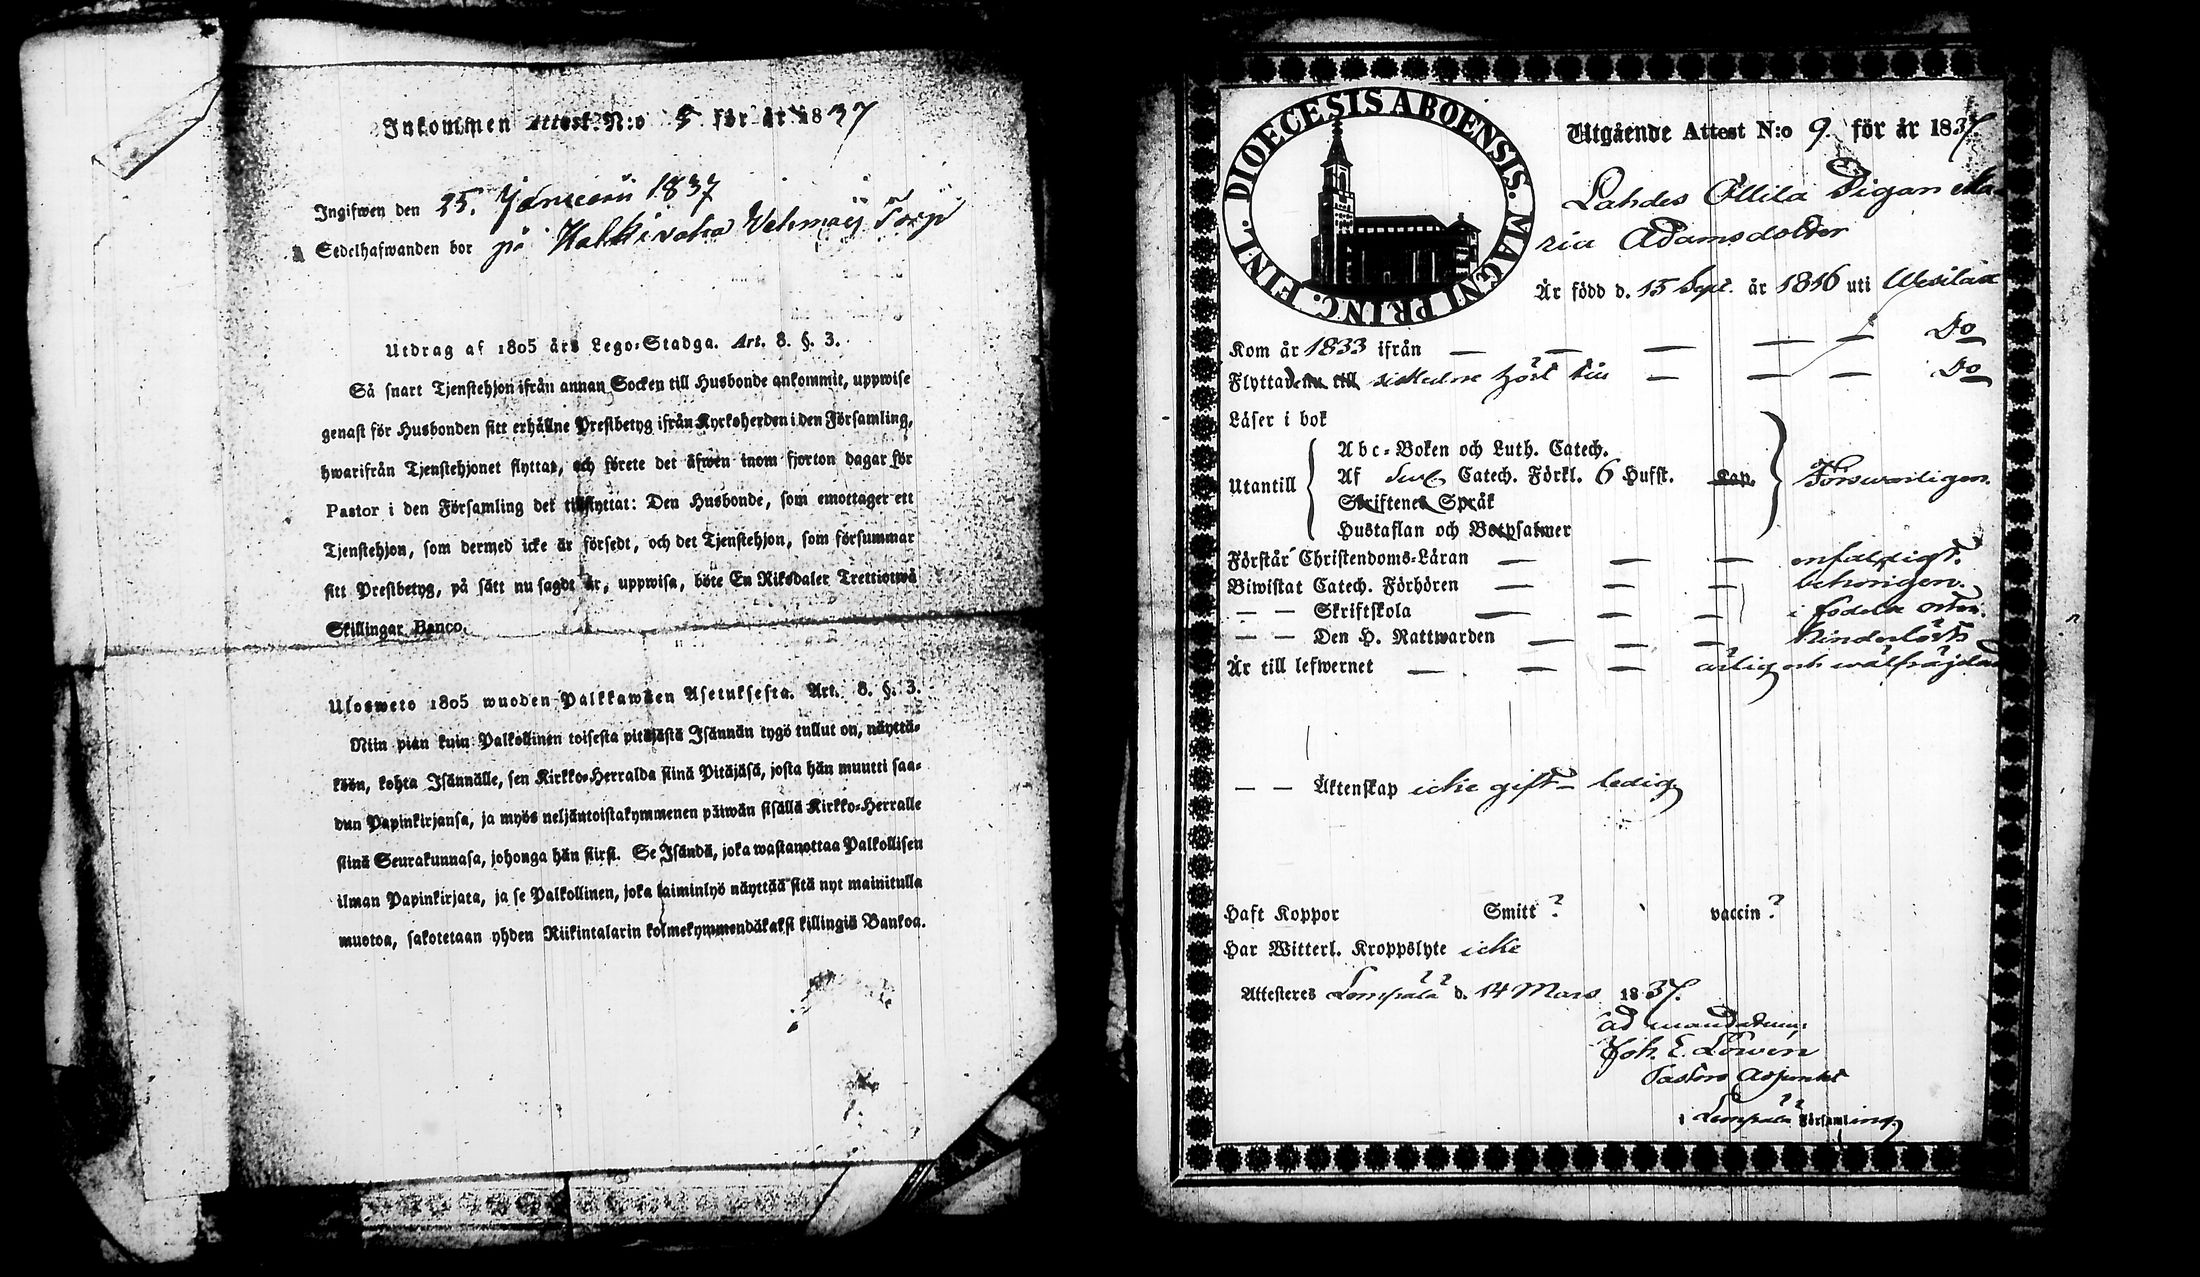 Inkommen Attest. N:o 5 för år 1837
Ingifwen den 25. Januarii 1837
Sedelhafwanden bor på Hakkivaha Vehmais Torp
Utdrag af 1805 års Lego-Stadga. Art. 8. §. 3.
Så snart Tjenstehjon ifrån annan Socken till Husbonde ankommit, uppwise
genast för Husbonden sitt erhållne Prestbetyg ifrån Kyrkoherden i den Församling,
hwarifrån Tjenstehjonet flyttat, och förete det äfwen inom fjorton dagar för
Pastor i den Församling det tillflyttat: Den Husbonde, som emottager ett
Tjenstehjon, som dermed icke är försedt, och det Tjenstehjon, som försummar
sitt Prestbetyg, på sätt nu sagdt är, uppwisa, böte En Riksdaler Trettiotwå
Skillingar Banco.
Ulosweto 1805 wuoden Palkkawäen Asetuksesta. Art. 8. §. 3.
Niin pian kuin Palkollinen toisesta pitäjästä Isännän tygö tullut on, näyttä-
köön, kohta Isännälle, sen Kirkko-Herralda siinä Pitäjäsä, josta hän muutti saa-
dun Papinkirjansa, ja myös neljäntoistakymmenen päiwän sisällä Kirkko-Herralle
siinä Seurakunnasa, johonga hän siirsi. Se Isändä, joka wastanottaa Palkollisen
ilman Papinkirjata, ja se Palkollinen, joka laiminlyö näyttää sitä nyt mainitulla
muotoa, sakotetaan yhden Riikintalarin kolmekymmendäkaksi killingiä Bankoa.
DIOECESIS ABOENSIS. MAGNI PRINC. FINL.
Utgående Attest N:o 9. för år 1837.
Lahdes Ollila Pigan Ma
ria Adamsdotter
Är född d. 15 Sept. år 1816 uti Wesilax
Kom år 1833 ifrån — — — — — Do
Flyttade nu till — — — Do
Läser i bok
Utantill
Abc-Boken och Luth. Catech.
Af Sveb Catech. Förkl. 6 Hufst. Kap. Försvarligen.
Skriftenes Språk
Hustaflan och Botpsalmer
Förstår Christendoms-Läran — — — enfaldigt.
Biwistat Catech. Förhören — — — behörigen.
— — Skriftskola — — — i födelse orten.
— — Den H. Nattwarden — — — hinderlöst
Är till lefwernet — — — ärlig och wälfräjdad
— — Äktenskap icke gift — ledig
Haft Koppor Smitt ? vaccin ?
Har Witterl. Kroppslyte icke
Attesteres Lempälä d. 14 Mars 1837.
ad mandatum:
Joh. E. Löwen
Pastors Adjunkt
i Lempälä Församling